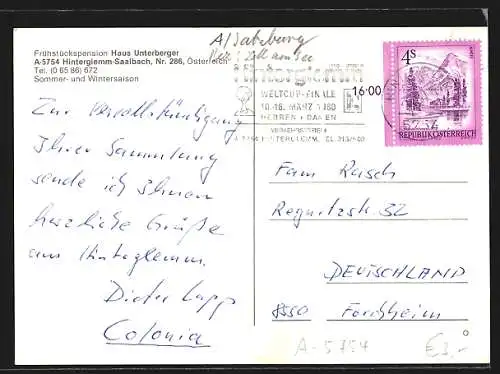 Frühstückspension Haus Unterberger
A-5754 Hinterglemm-Saalbach, Nr. 286, Österreich
Tel. (0 65 86) 672
Sommer- und Wintersaison
A/Salzburg
Bez. Zell am See
Hinterglemm
16·00
WELTCUP-FINALE
10.-16. MÄRZ 1980
HERREN + DAMEN
VERKEHRSVEREIN
5754
4S
REPUBLIK ÖSTERREICH
Zur Vervollständigung
Ihrer Sammlung
sende ich Ihnen
herzliche Grüße
aus Hinterglemm.
Dieter Lapp
Colonia
Fam Rasch
Regnitzstr. 32
DEUTSCHLAND
8550 Forchheim
A-5754
€3,-